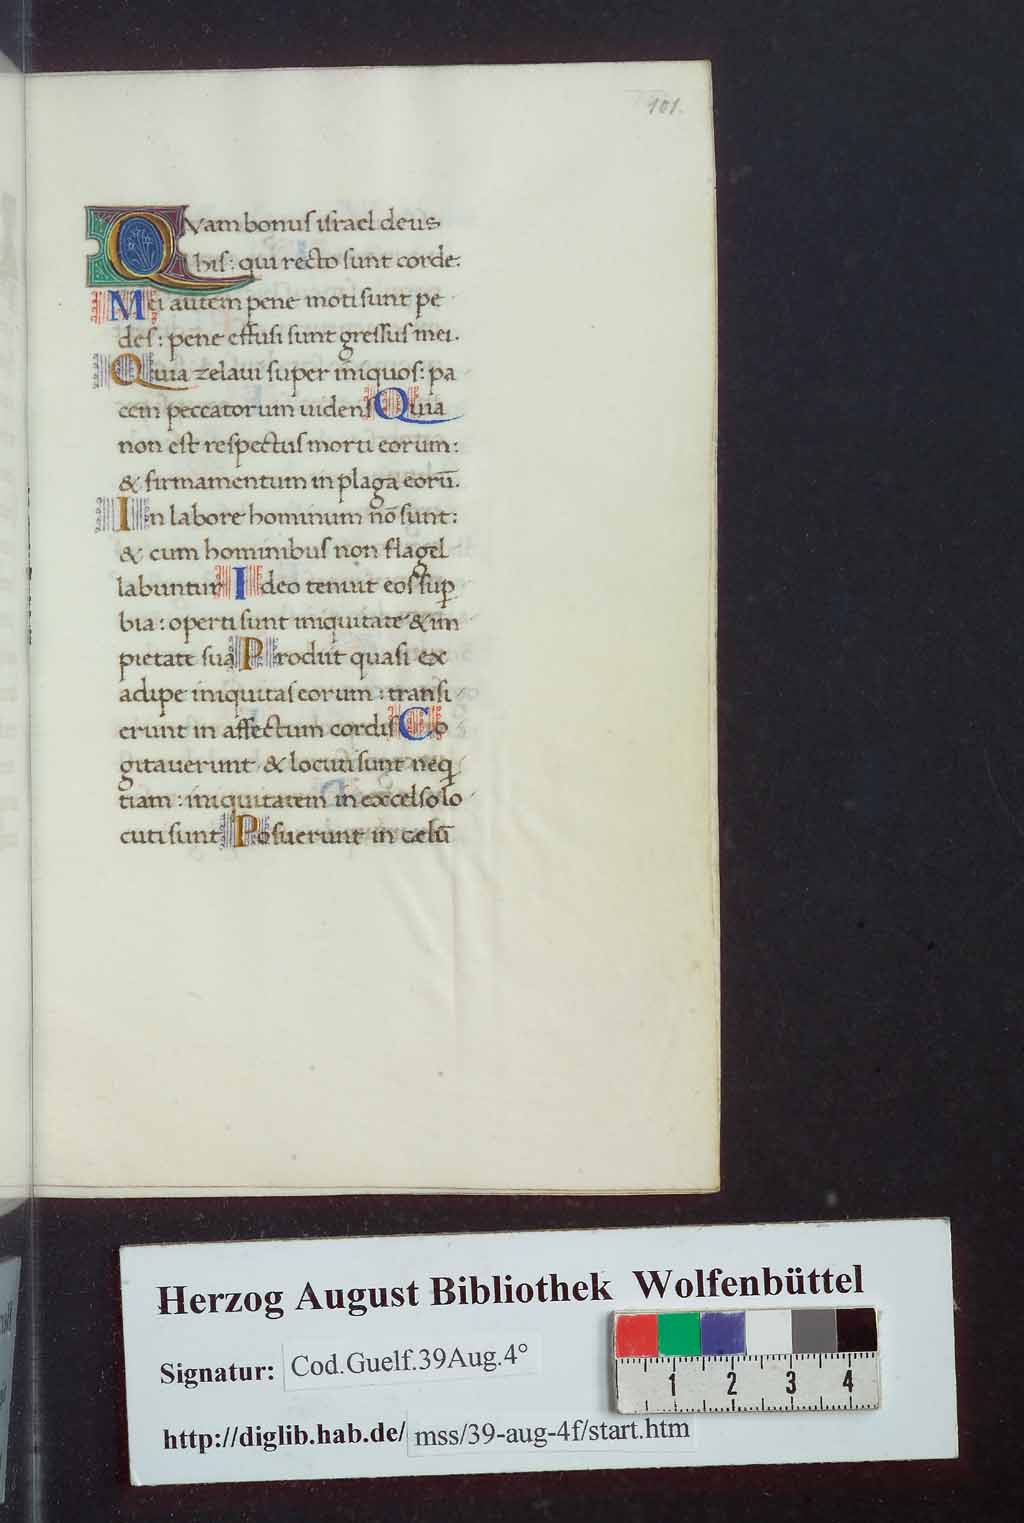 101.
QVam bonuſ iſrael deus
hiſ: qui recto ſunt corde:
Mei autem pene moti ſunt pe
deſ: pene effuſi ſunt greſſuſ mei.
Quia zelaui ſuper iniquoſ: pa
cem peccatorum uidenſ Quia
non eſt reſpectuſ morti eorum:
& firmamentum in plaga eorū.
In labore hominum nō ſunt:
& cum hominibuſ non flagel
labuntur Ideo tenuit eoſ ſuꝑ
bia: operti ſunt iniquitate & im
pietate ſua Prodiit quaſi ex
adipe iniquitaſ eorum: tranſi
erunt in affectum cordiſ Co
gitauerunt & locuti ſunt neq
tiam: iniquitatem in excelſo lo
cuti ſunt Poſuerunt in cęlū
Herzog August Bibliothek Wolfenbüttel
Signatur: Cod.Guelf.39Aug.4°
1 2 3 4
http://diglib.hab.de/ mss/39-aug-4f/start.htm